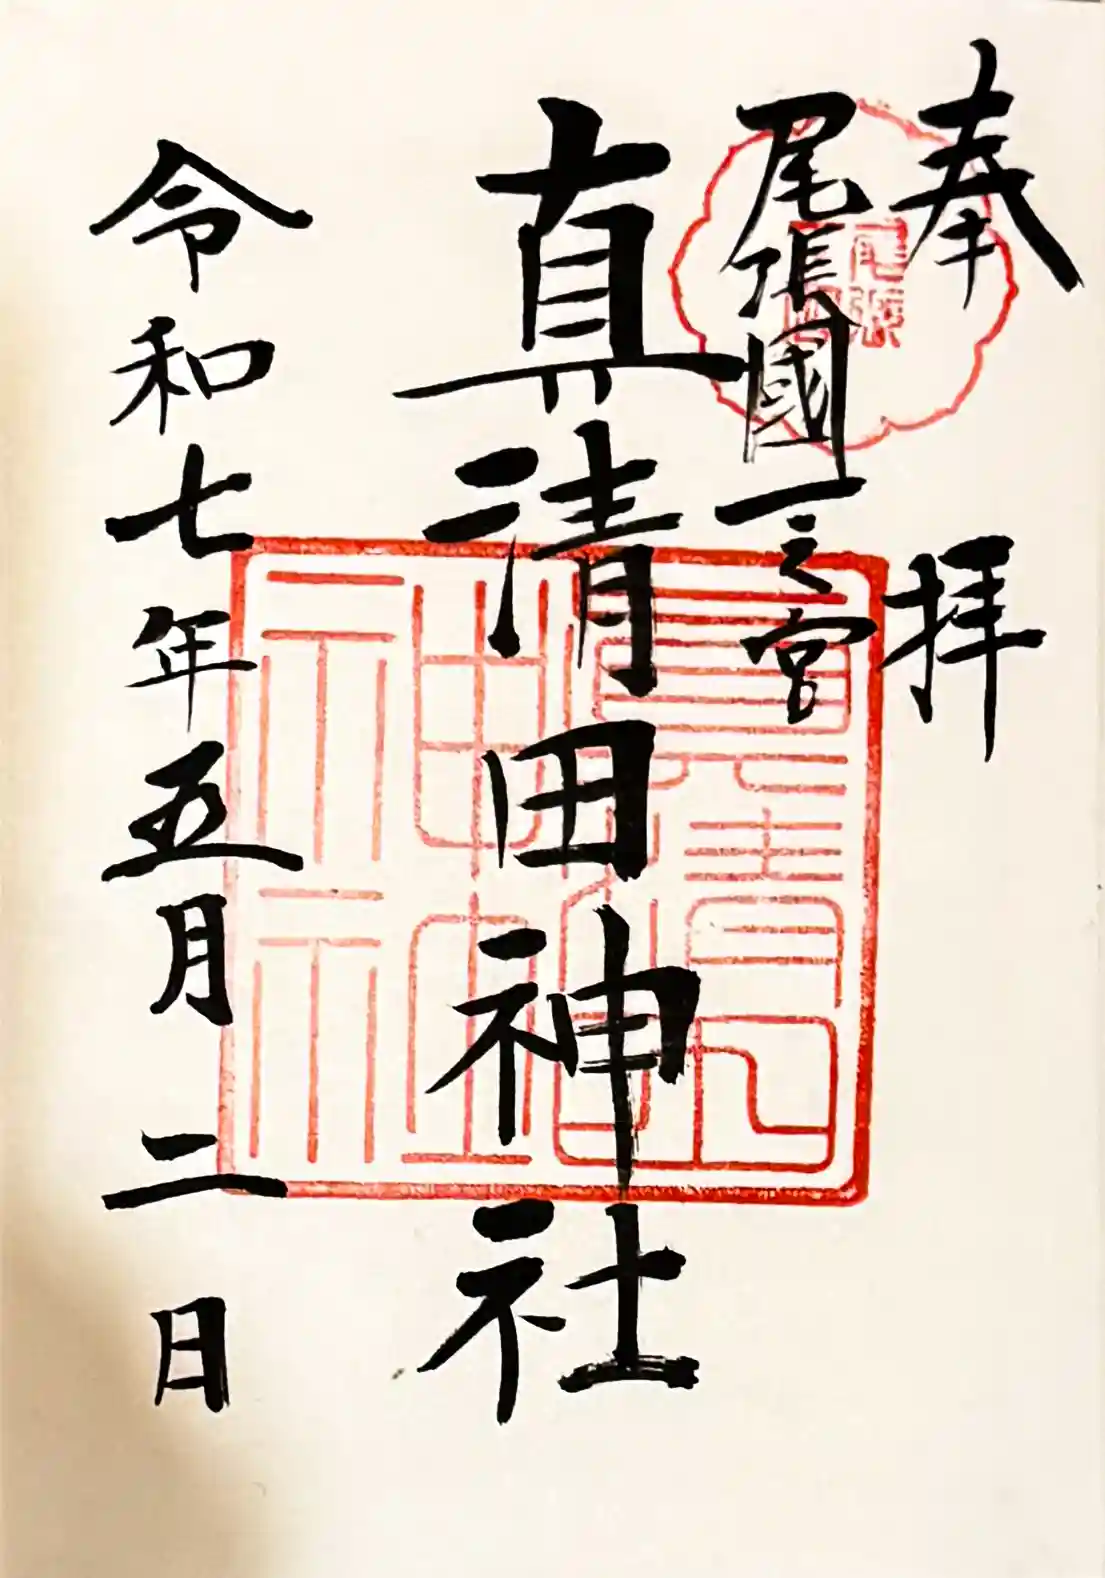 奉拝
尾張國一之宮
真清田神社
令和七年五月二日
尾張
真清田
神社